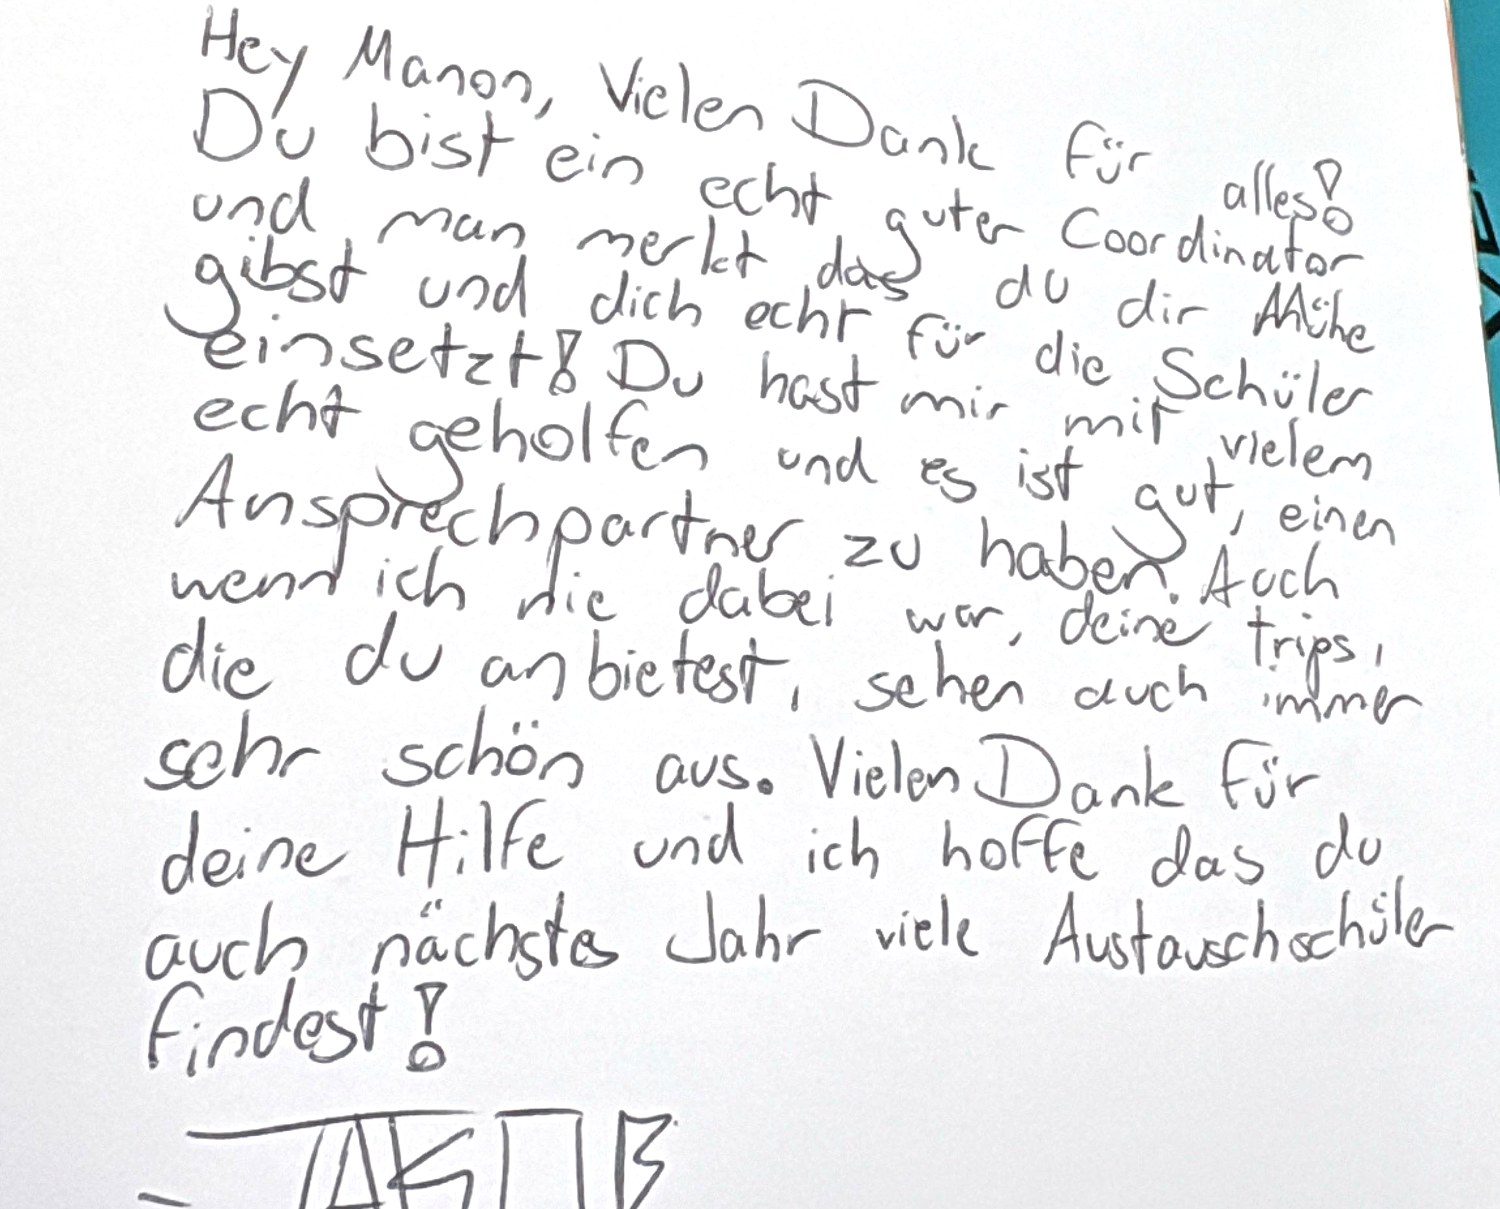 Hey Manon, Vielen Dank für alles!
Du bist ein echt guter Coordinator
und man merkt das du dir Mühe
gibst und dich echt für die Schüler
einsetzt! Du hast mir mit vielem
echt geholfen und es ist gut, einen
Ansprechpartner zu haben. Auch
wenn ich nie dabei war, deine trips,
die du anbietest, sehen auch immer
sehr schön aus. Vielen Dank für
deine Hilfe und ich hoffe das du
auch nächstes Jahr viele Austauschschüler
findest!
- JAKOB